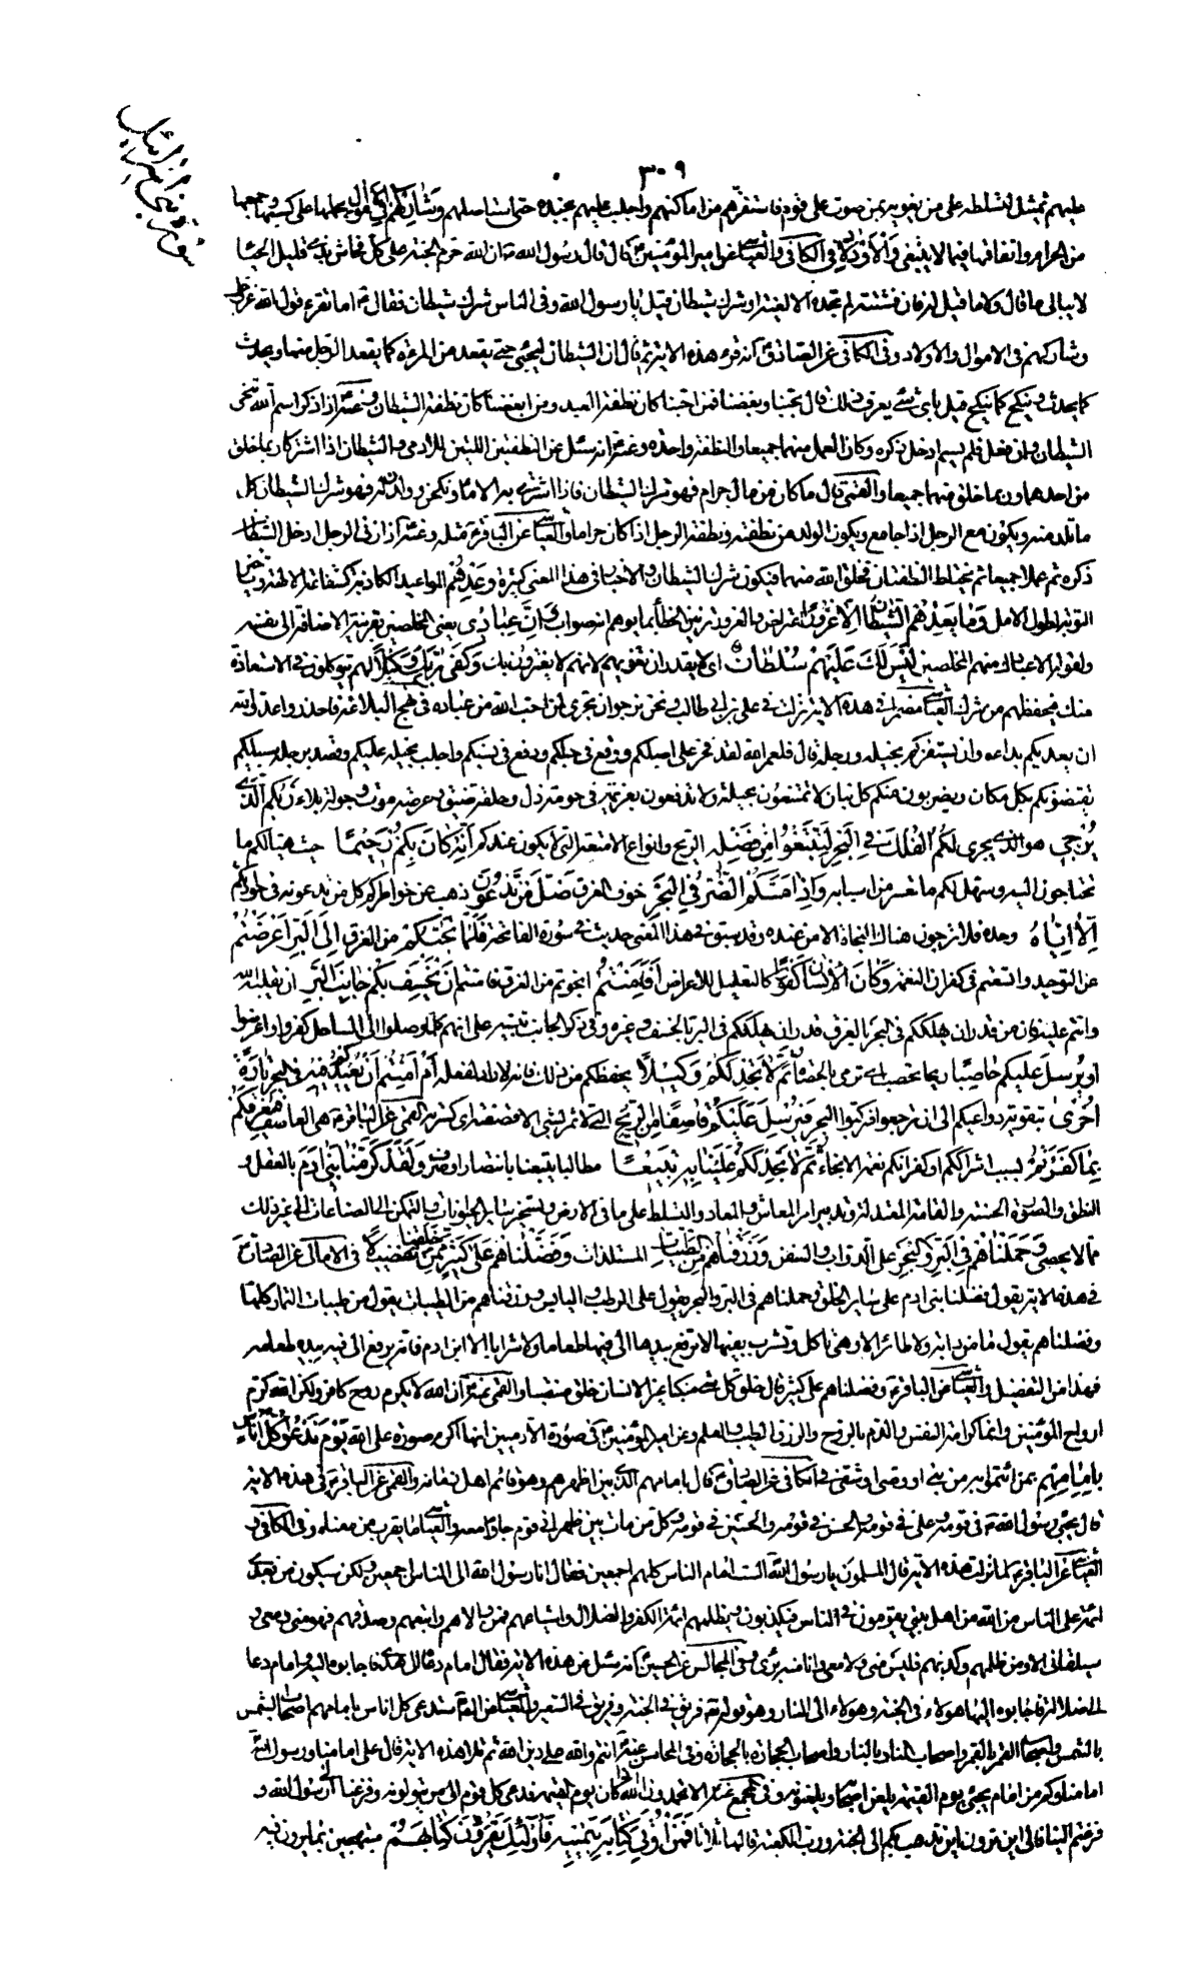 سورة بنی اسرائیل
٣٠٩
عليهم تمثيل لتسلطه على من يغويه بمن صوت على قوم فاستفزهم من اماكنهم واجلب عليهم بجنده حتى استاصلهم وَشارِكْهُمْ فِي الْأَمْوالِ بحملها على كسبها وجمعها
من الحرام واتفاقها فيما لا ينبغي وَالْأَوْلادِ في الكافي والعياشي عن امير المؤمنين قال قال رسول الله ص ان الله حرم الجنة على كل فحاش بذي قليل الحيا
لا يبالي ما قال ولا ما قيل له فان فتشته لم تجده الا لغية او شرك شيطان قيل يا رسول الله وفي الناس شرك شيطان فقال ص اما تقرء قول الله عز وجل
وشاركهم في الاموال والاولاد وفي الكافي عن الصادق انه قرء هذه الاية ثم قال ان الشيطان ليجيئ حتى يقعد من المرءة كما يقعد الرجل منها ويحدث
كما يحدث وينكح كما ينكح قيل باى شئ يعرف ذلك قال بحبنا وبغضنا فمن احبنا كان نطفة العبد ومن ابغضنا كان نطفة الشيطان وعنه اذا ذكر اسم الله تنحى
الشيطان وان فعل فلم يسم ادخل ذكره وكان العمل منهما جميعا والنطفة واحدة وعنه انه سئل عن النطفتين اللتين للادمى والشيطان اذا اشتركا ربما خلق
من احدهما وربما خلق منهما جميعا والقمي قال ما كان من مال حرام فهو شرك الشيطان فاذا اشترى به الاماء ونكحهن وولد له فهو شرك الشيطان كل
ما تلد منه ويكون مع الرجل اذا جامع ويكون الولد من نطفته ونطفة الرجل اذا كان حراما والعياشي عن الباقر ع مثله وعنه اذا زنى الرجل ادخل الشيطان
ذكره ثم عملا جميعا ثم تختلط النطفتان فيخلق الله منهما فيكون شرك الشيطان والاخبار في هذا المعنى كثيرة وَعِدْهُمْ المواعيد الكاذبة كشفاعة الالهة وتاخير
التوبة لطول الامل وَما يَعِدُهُمُ الشَّيْطانُ إِلَّا غُرُوراً اعتراض والغرور تزيين الخطأ بما يوهم انه صواب إِنَّ عِبادِي يعني المخلصين بقرينة الاضافة الى نفسه
ولقوله الا عبادك منهم المخلصين لَيْسَ لَكَ عَلَيْهِمْ سُلْطانٌ اى لا يقدر ان تغويهم لانهم لا يغترون بك وَكَفى بِرَبِّكَ وَكِيلًا لهم يتوكلون في الاستعاذة
منك فيحفظهم من شرك العياشي مضمرا في هذه الاية نزلت في علي بن ابي طالب ونحن نرجو ان تجرى لمن احب الله من عباده في نهج البلاغة فاحذروا عدو الله
ان يعديكم بدائه وان يستفزكم بخيله ورجله قال فلعمر الله لقد فخر على اصلكم ووقع في حسبكم ودفع في نسبكم واجلب بخيله عليكم وقصد برجله سبيلكم
يقتنصونكم بكل مكان ويضربون منكم كل بنان لا تمتنعون بحيلة ولا تدفعون بعزيمة في حومة ذل وحلقة ضيق وعرصة موت وجولة بلاء رَبُّكُمُ الَّذِي
يُزْجِي هو الذى يجرى لَكُمُ الْفُلْكَ فِي الْبَحْرِ لِتَبْتَغُوا مِنْ فَضْلِهِ الريح وانواع الامتعة التي لا يكون عندكم إِنَّهُ كانَ بِكُمْ رَحِيماً حيث هيأ لكم ما
تحتاجون اليه وسهل لكم ما تعسر من اسبابه وَإِذا مَسَّكُمُ الضُّرُّ فِي الْبَحْرِ خوف الغرق ضَلَّ مَنْ تَدْعُونَ ذهب عن خواطركم كل من تدعونه في حوادثكم
إِلَّا إِيَّاهُ وحده فلا ترجون هناك النجاة الا من عنده وقد سبق في هذا المعنى حديث في سورة الفاتحة فَلَمَّا نَجَّاكُمْ من الغرق إِلَى الْبَرِّ أَعْرَضْتُمْ
عن التوحيد واتسعتم في كفران النعمة وَكانَ الْإِنْسانُ كَفُوراً كالتعليل للاعراض أَفَأَمِنْتُمْ انجوتم من الغرق فامنتم أَنْ يَخْسِفَ بِكُمْ جانِبَ الْبَرِّ ان يقلبه الله
وانتم عليه فان من قدر ان يهلككم في البحر بالغرق قدر ان يهلككم في البر بالخسف وغيره وفي ذكر الجانب تنبيه على انهم كما وصلوا الى الساحل كفروا واعرضوا
أَوْ يُرْسِلَ عَلَيْكُمْ حاصِباً ريحا تحصب اى ترمي بالحصباء ثُمَّ لا تَجِدُوا لَكُمْ وَكِيلًا يحفظكم من ذلك فانه لا راد لفعله أَمْ أَمِنْتُمْ أَنْ يُعِيدَكُمْ فِيهِ في البحر تارَةً
أُخْرى بتقوية دواعيكم الى ان ترجعوا فتركبوا البحر فَيُرْسِلَ عَلَيْكُمْ قاصِفاً مِنَ الرِّيحِ التي لا تمر بشئ الا قصفته اى كسرته القمي عن الباقر ع هي العاصف فَيُغْرِقَكُمْ
بِما كَفَرْتُمْ بسبب اشراككم او كفرانكم نعمة الانجاء ثُمَّ لا تَجِدُوا لَكُمْ عَلَيْنا بِهِ تَبِيعاً مطالبا يتبعنا بانتصار او صرف وَلَقَدْ كَرَّمْنا بَنِي آدَمَ بالعقل و
النطق والصورة الحسنة والقامة المعتدلة وتدبير امر المعاش والمعاد والتسلط على ما في الارض وتسخير ساير الحيوانات والتمكن الى الصناعات الى غير ذلك
مما لا يحصى وَحَمَلْناهُمْ فِي الْبَرِّ وَالْبَحْرِ على الدواب والسفن وَرَزَقْناهُمْ مِنَ الطَّيِّباتِ المستلذات وَفَضَّلْناهُمْ عَلى كَثِيرٍ مِمَّنْ خَلَقْنا تَفْضِيلًا في الامالي عن الصادق
في هذه الاية يقول فضلنا بني ادم على ساير الخلق وحملناهم في البر والبحر يقول على الرطب واليابس ورزقناهم من الطيبات يقول من طيبات الثمار كلها
وفضلناهم يقول ما من دابة ولا طائر الا وهي تاكل وتشرب بفيها لا ترفع بيدها الى فيها طعاما ولا شرابا الا ابن ادم فانه يرفع الى فيه بيده طعامه
فهذا من التفضيل والعياشي عن الباقر ع وفضلناهم على كثير قال خلق كل شئ منكبا غير الانسان خلق منتصبا والقمي عنه ان الله لا يكرم روح كافر ولكن الله كرم
ارواح المؤمنين وانما كرامة النفس والدم بالروح والرزق الطيب والعلم وعن امير المؤمنين في صورة الادميين انها اكرم صورة على الله يَوْمَ نَدْعُوا كُلَّ أُناسٍ
بِإِمامِهِمْ بمن ائتموا به من نبى او وصى او شقى في الكافي عن الصادق قال بامامهم الذى بين اظهرهم وهو قائم اهل زمانه والقمي عن الباقر ع في هذه الاية
قال يجيئ رسول الله ص في قومه وعلي في قومه والحسن في قومه والحسين في قومه وكل من مات بين ظهراني قوم جاؤا معه والعياشي ما يقرب من معناه وفي الكافي و
العياشي عن الباقر ع لما نزلت هذه الاية قال المسلمون يا رسول الله الست امام الناس كلهم اجمعين فقال انا رسول الله الى الناس اجمعين ولكن سيكون من بعدى
ائمة على الناس من الله من اهل بيتي يقومون في الناس فيكذبون ويظلمهم ائمة الكفر والضلال واشياعهم فمن والاهم واتبعهم وصدقهم فهو مني ومعي و
سيلقاني الا ومن ظلمهم وكذبهم فليس مني ولا معي وانا منه برئ وفي المجالس عن الحسين انه سئل عن هذه الاية فقال امام دعا الى هدى فاجابوه اليه وامام دعا
الى ضلالة فاجابوه اليها هؤلاء في الجنة وهؤلاء الى النار وهو قوله تعالى فريق في الجنة وفريق في السعير والعياشي عن الصادق سيدعى كل اناس بامامهم اصحاب الشمس
بالشمس واصحاب القمر بالقمر واصحاب النار بالنار واصحاب الحجارة بالحجارة وفي المحاسن عنه انتم والله على دين الله ثم تلا هذه الاية قال علي امامنا ورسول الله
امامنا وكم من امام يجيئ يوم القيمة يلعن اصحابه ويلعنونه وفي المجمع عنه الا تحمدون الله اذا كان يوم القيمة فدعى كل قوم الى من يتولونه وفزعنا الى رسول الله و
فزعتم الينا فالى اين ترون اين تذهب بكم الى الجنة ورب الكعبة قالها ثلاثا فَمَنْ أُوتِيَ كِتابَهُ بِيَمِينِهِ فَأُولئِكَ يَقْرَؤُنَ كِتابَهُمْ مبتهجين بما يرون فيه